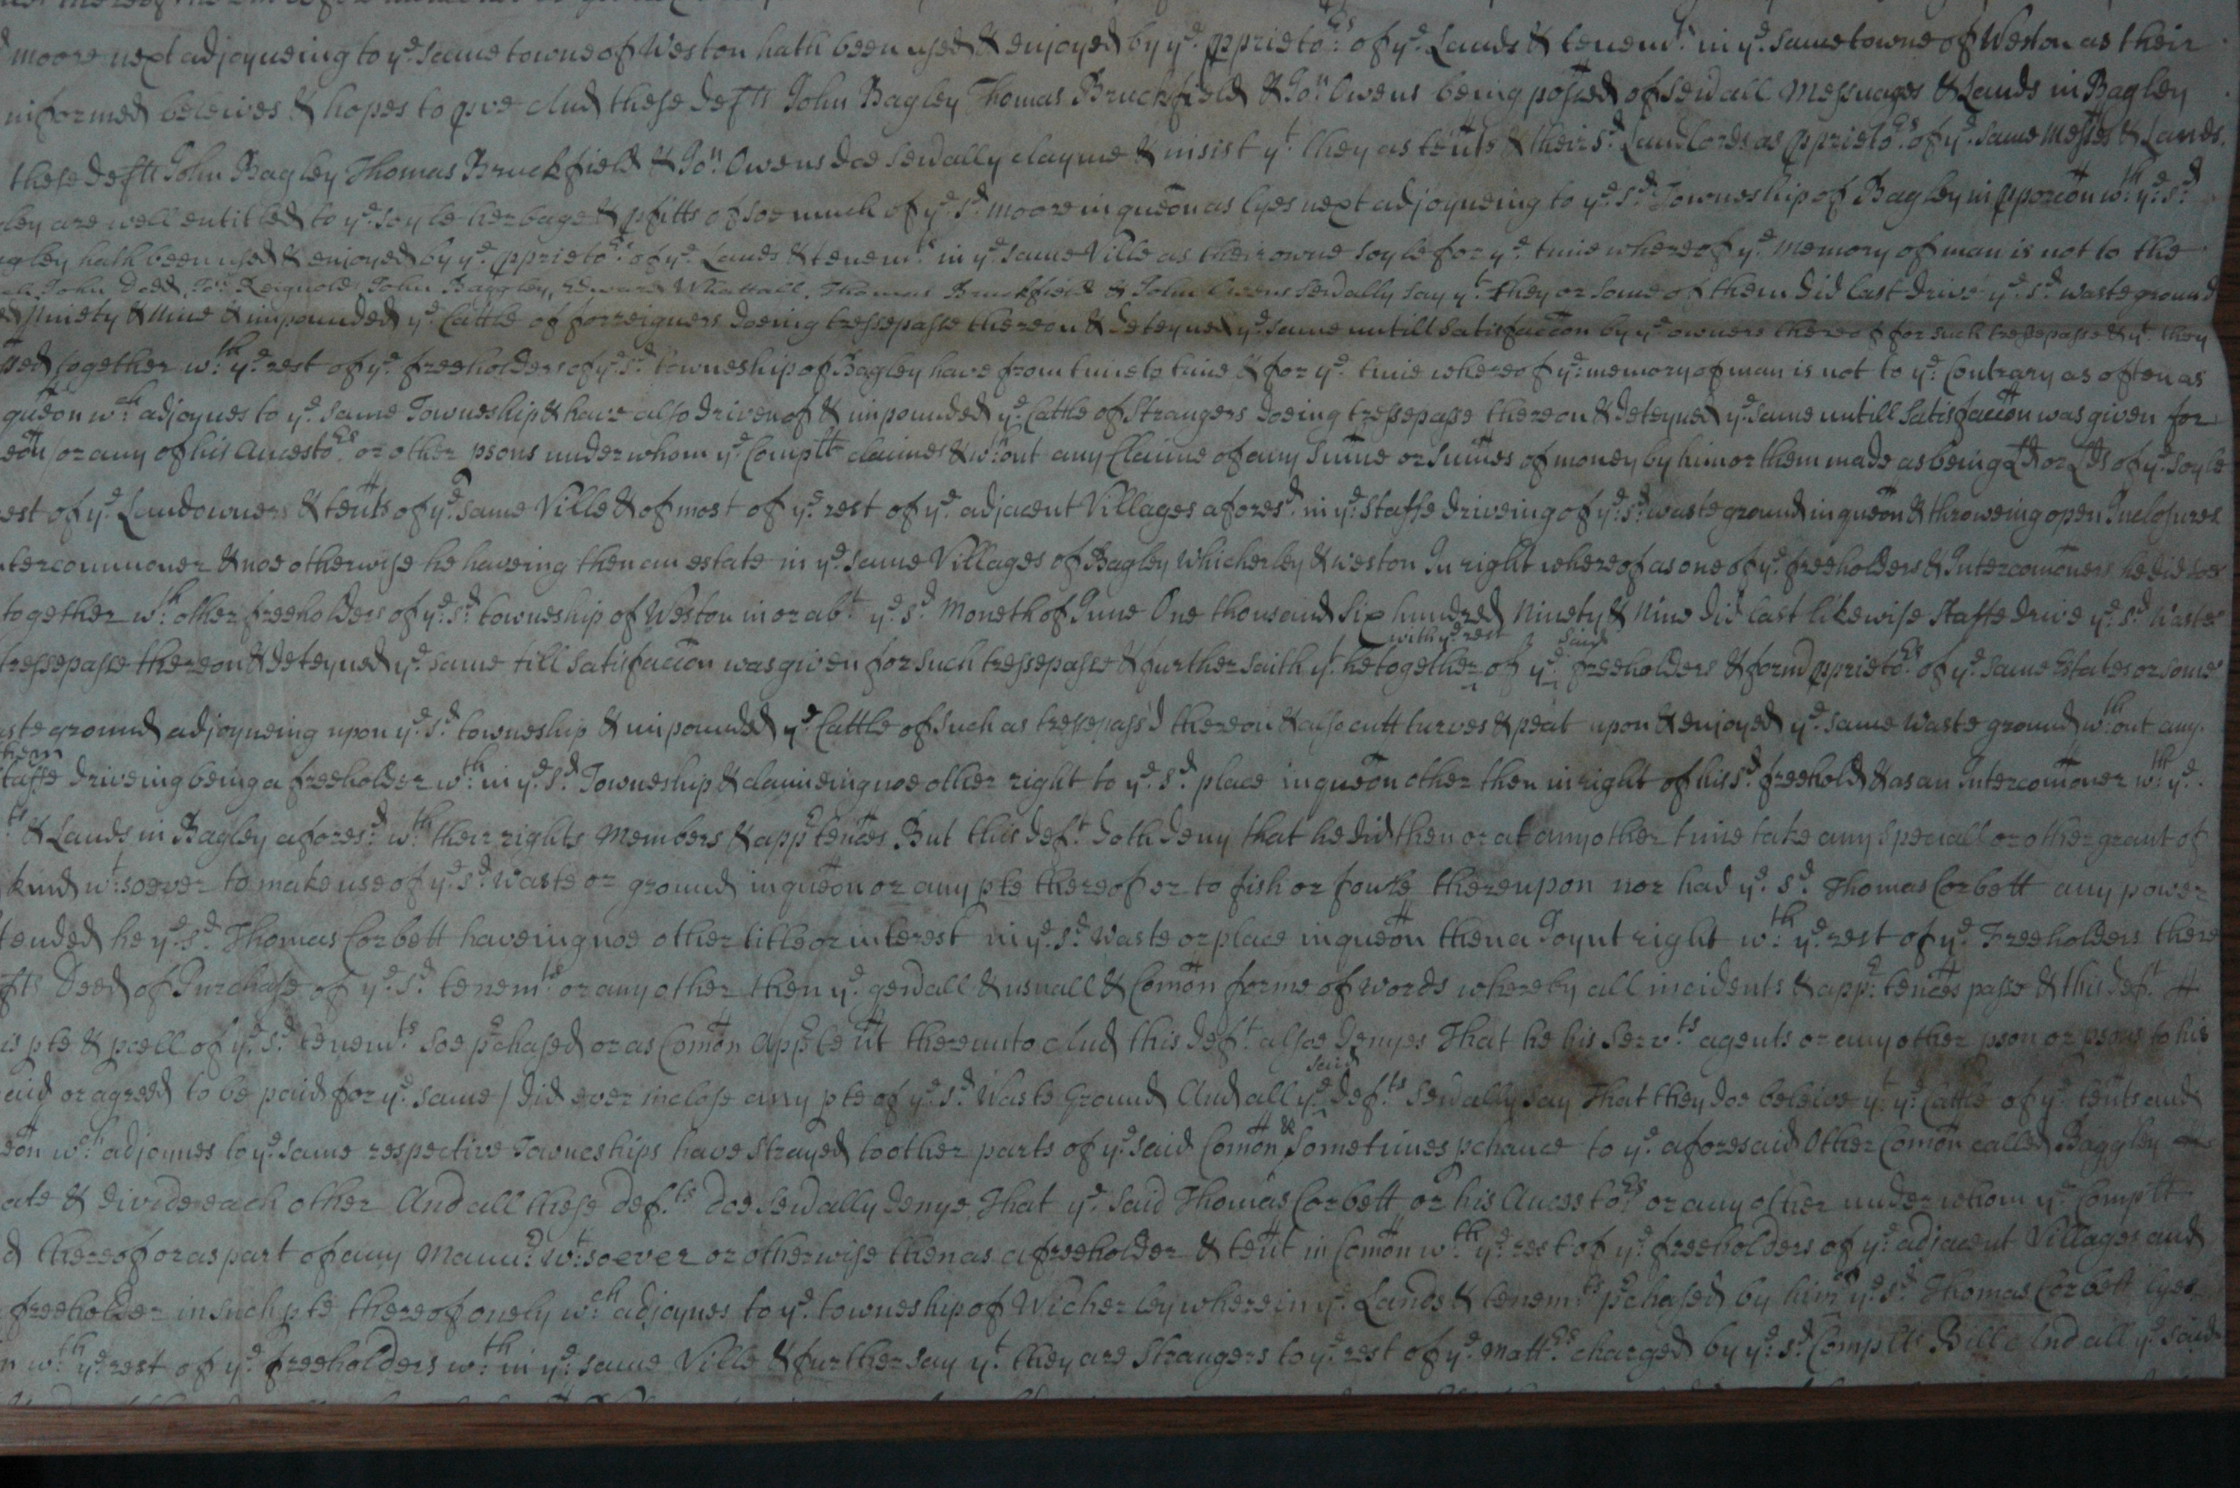 moore next adjoyneing to ye. same towne of Weston hath been used & enjoyed by ye. pprietors. of ye. Lands & tenemts. in ye. same towne of Weston as their
informed beleives & hopes to pve And these defts John Bagley Thomas Bruckfield & Jon. Owens being possed of sevall Messuages & Lands in Bagley
these defts John Bagley Thomas Bruckfield & Jon. Owens doe sevally clayme & insist yt. they as tents & their sd. Landlords as pprietors. of ye. same Messes & Lands.
ley are well entitled to ye. soyle herbage & pfitts of soe much of ye. sd. moore in queon as lyes next adjoyneing to ye. sd. Towneship of Bagley in pporcon wth. ye. sd.
gley hath been used & enjoyed by ye. pprietors. of ye. Lands & tenemts. in ye. same Ville as their owne soyle for ye. time whereof ye. Memory of man is not to the
John Dodd, Jon. Reignolds John Baggley, Edward Whattall, Thomas Bruckfield & John Owens sevally say yt. they or some of them did last drive ye. sd. waste ground
Ninety & Nine & impounded ye. Cattle of forreigners doeing tressepasse thereon & deteyned ye. same untill satisfaccon by ye. owners thereof for such tressepasse & yt. they
sed together wth. ye. rest of ye. freeholders of ye. sd. towneship of Bagley have from time to time & for ye. time whereof ye. memory of man is not to ye. Contrary as often as
queon wch. adjoynes to ye. same Towneship & have also driven of & impounded ye. Cattle of Strangers doeing tressepasse thereon & deteyned ye. same untill satisfaccon was given for
eon / or any of his Ancestors or other psons under whom ye. Complt claimes & wthout any Claime of any Sume or Sumes of money by him or them made as being Ld. or Lds of ye. soyle
est of ye. Landowners & tents of ye. same Ville & of most of ye. rest of ye. adjacent Villages aforesd. in ye. staffe driveing of ye. sd. waste ground in queon & throweing open Inclosures
tercommoner & noe otherwise he haveing then an estate in ye. same Villages of Bagley Whicherley & Weston In right whereof as one of ye. freeholders & Intercomoners he did soe
together wth. other freeholders of ye. sd. towneship of Weston in or abt ye. sd. Moneth of June One thousand Six hundred Ninety & Nine did last likewise staffe drive ye. sd. Waste
tressepasse thereon & deteyned ye. same till satisfaccon was given for such tressepasse & further saith yt. he together with ye rest of ye. said freeholders & formd pprietors. of ye. same Estates or some
aste ground adjoyneing upon ye. sd. towneship & impounded ye. Cattle of such as tressepass'd thereon & also cutt turves & peat upon & enjoyed ye. same waste ground wthout any.
them
taffe driveing being a freeholder wth.in ye. sd. Towneship & claimeing noe other right to ye. sd. place in queon other then in right of his sd. freehold & as an Intercomoner wth. ye.
ts & Lands in Bagley aforesd. wth. their rights Members & apptences But this deft. doth deny that he did then or at any other time take any speciall or other grant of
kind wtsoever to make use of ye. sd. Waste or ground in queon or any pte thereof or to fish or fowle thereupon nor had ye. sd. Thomas Corbett any power
tended he ye. sd. Thomas Corbett haveing noe other title or interest in ye. sd. Waste or place in queon then a Joynt right wth. ye. rest of ye. Freeholders there
fts Deed of Purchase of ye. sd. tenemts. or any other then ye. genall & usuall & Comon forme of words whereby all incidents & apptences passe & this deft.
is pte & pcell of ye. sd. tenemts. soe pchased or as Comon apptent thereunto And this deft. alsoe denyes That he his Servts. agents or any other pson or psons to his
aid or agreed to be paid for ye. same / did ever inclose any pte of ye. sd. Waste Ground And all ye said defts. sevally say That they doe beleive yt ye. Cattle of ye. tents and
eon wch. adjoynes to ye. same respective Towneships have strayed to other parts of ye. said Comon & Sometimes pchance to ye. aforesaid Other Comon called Baggley
ate & divide each other And all these defts. doe sevally denye That ye. said Thomas Corbett or his Ancestors or any other under whom ye. Complt
d thereof or as part of any Mannr. wtsoever or otherwise then as a freeholder & tent in Comon wth. ye. rest of ye. freeholders of ye. adjacent Villages and
freeholder in such pte thereof onely wch adjoynes to ye. towneship of Wicherley wherein ye. Lands & tenemts. pchased by him ye. sd. Thomas Corbett lyes
n wth. ye. rest of ye. freeholders wth.in ye. same Ville & further say yt. they are strangers to ye. rest of ye. Mattrs. charged by ye. sd. Complts Bill And all ye. said